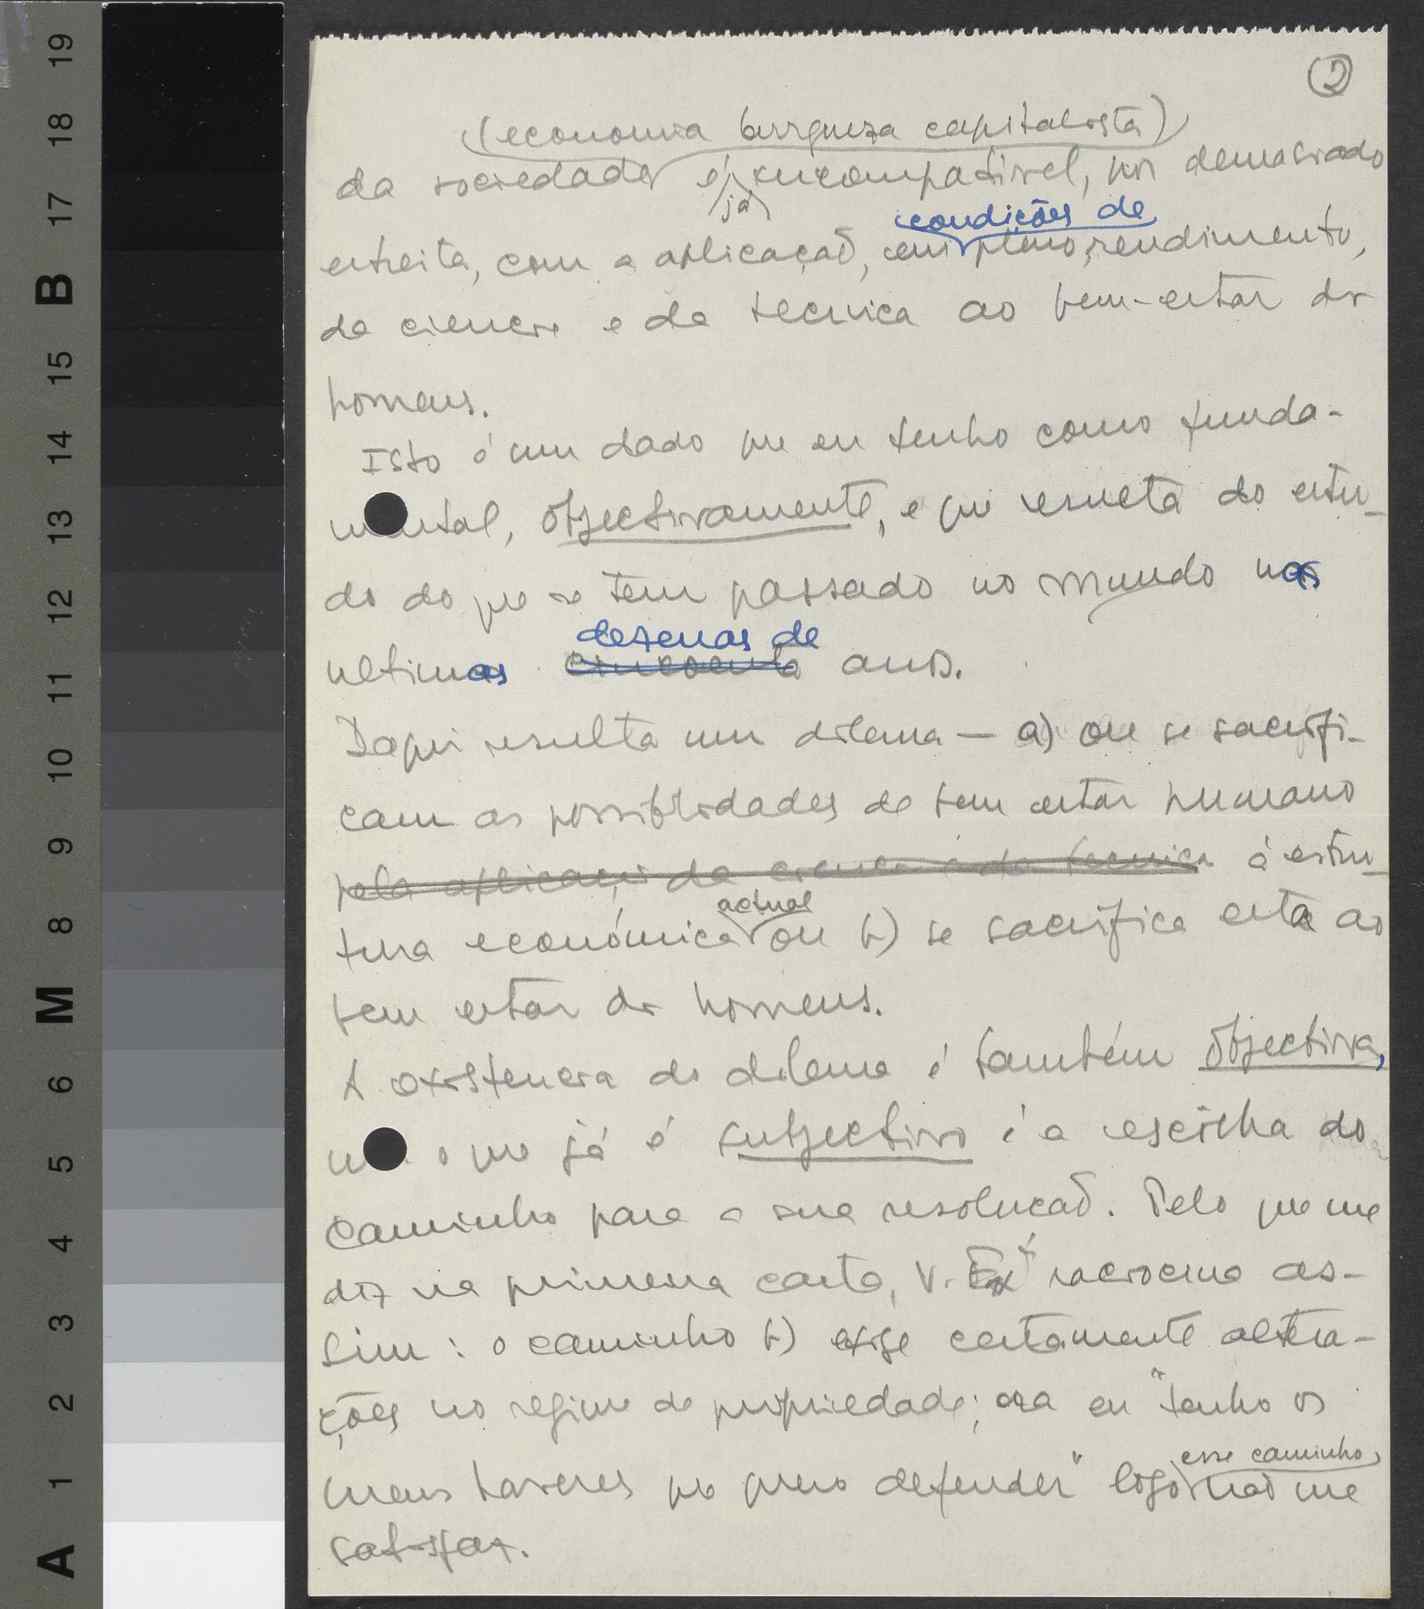 2
(economia burguesa capitalista)
da sociedade é já incompatível, por demasiado
condições de
estreita, com a aplicação, em pleno rendimento,
da ciencia e da tecnica ao bem-estar dos
homens.
Isto é um dado que eu tenho como funda-
mental, objectivamente, e que resulta do estu-
do do que se tem passado no mundo nas
ultimas dezenas de cincoenta anos.
Daqui resulta um dilema — a) ou se sacrifi-
cam as possiblidades de bem estar humano
pela aplicação da ciencia e da tecnica á estru-
actual
tura económica ou b) se sacrifica esta ao
bem estar dos homens.
A existencia do dilema é também objectiva,
mas o que já é subjectivo é a escolha do
caminho para a sua resolucaõ. Pelo que me
diz na primeira carta, V. Exª raciocina as-
sim: o caminho b) exige certamente altera-
ções no regime de propriedade; ora eu "tenho os
esse caminho
meus haveres que quero defender" logo naõ me
satisfaz.
19
18
17
B
16
15
14
13
12
11
10
9
8
M
6
5
4
3
2
1
A